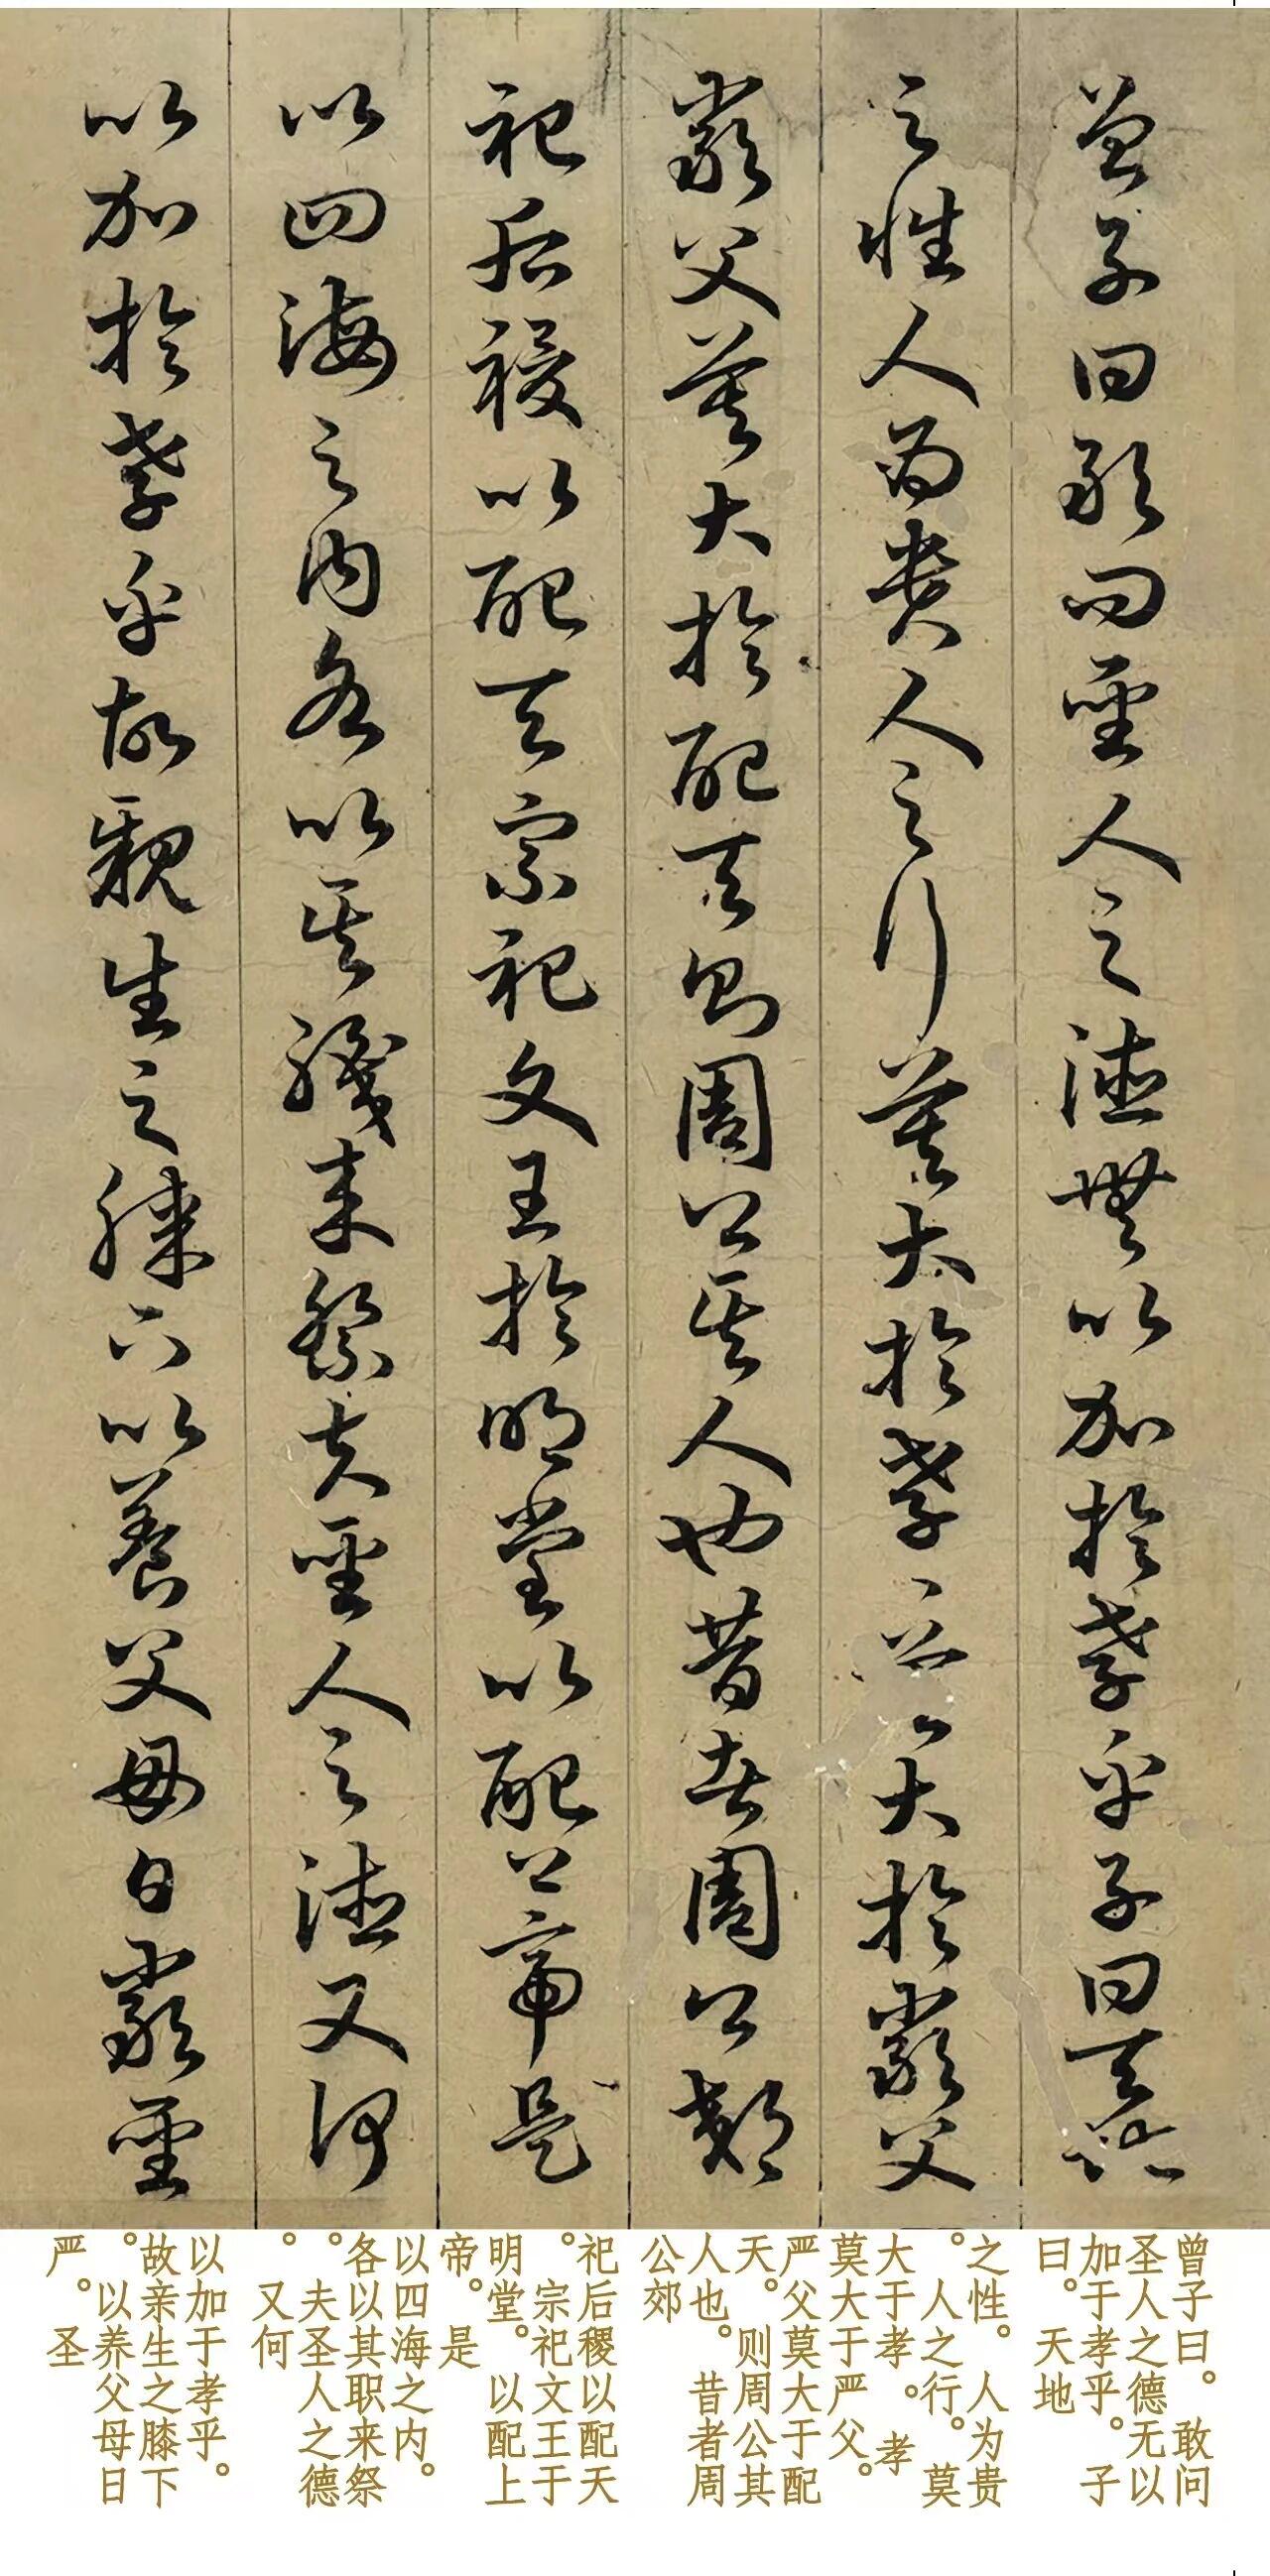 曾子曰敢問聖人之德無以加於孝乎子曰天地
之性人為貴人之行莫大於孝孝莫大於嚴父
嚴父莫大於配天則周公其人也昔者周公郊
祀后稷以配天宗祀文王於明堂以配上帝是
以四海之內各以其職來祭夫聖人之德又何
以加於孝乎故親生之膝下以養父母日嚴聖
曾子曰。敢问
圣人之德无以
加于孝乎。子
曰。天地
之性。人为贵
。人之行。莫
大于孝。孝
莫大于严父。
严父莫大于配
天。则周公其
人也。昔者周
公郊
祀后稷以配天
。宗祀文王于
明堂。以配上
帝。是
以四海之内。
各以其职来祭
。夫圣人之德
。又何
以加于孝乎。
故亲生之膝下
。以养父母日
严。圣